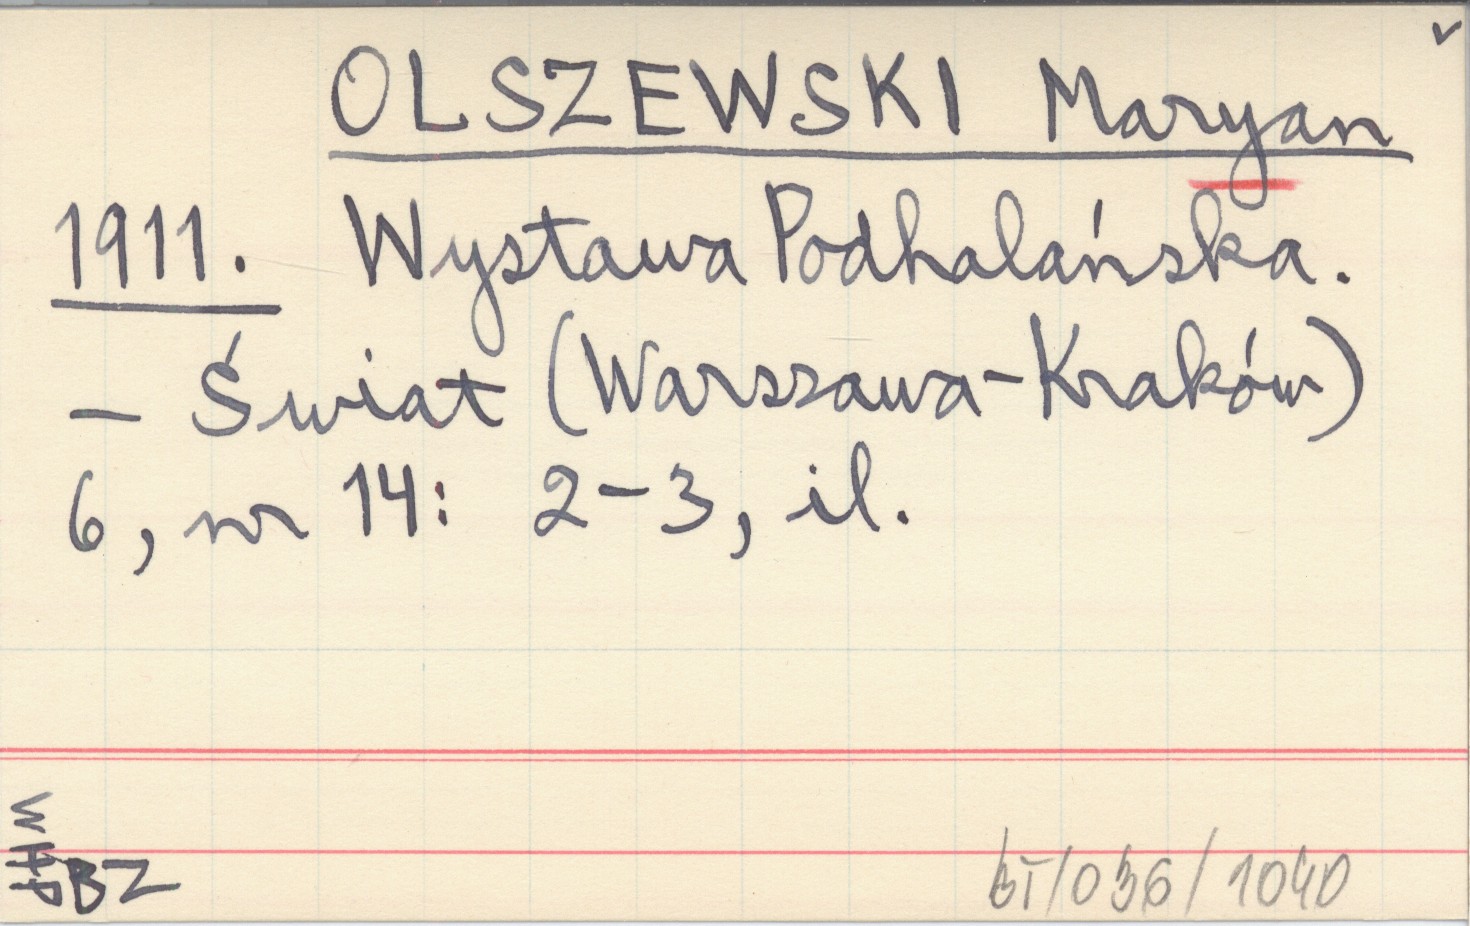 OLSZEWSKI Maryan
1911. Wystawa Podhalańska.
– Świat (Warszawa-Kraków)
6, nr 14: 2-3, il.
BZ
bT/036/1040